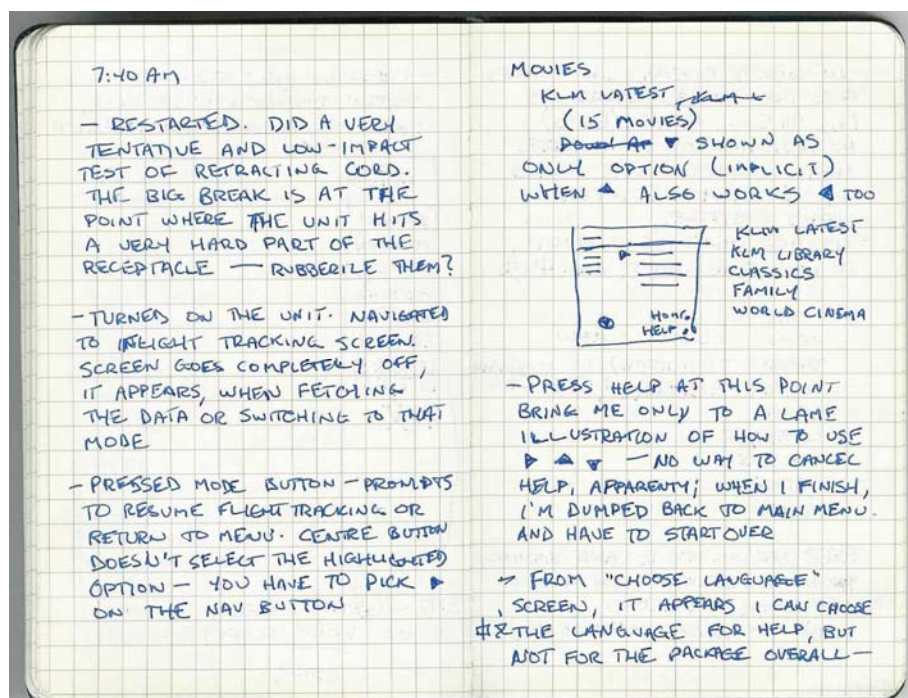 7:40 AM
— RESTARTED. DID A VERY
TENTATIVE AND LOW-IMPACT
TEST OF RETRACTING CORD.
THE BIG BREAK IS AT THE
POINT WHERE THE UNIT HITS
A VERY HARD PART OF THE
RECEPTACLE — RUBBERIZE THEM?
— TURNED ON THE UNIT. NAVIGATED
TO INFLIGHT TRACKING SCREEN.
SCREEN GOES COMPLETELY OFF,
IT APPEARS, WHEN FETCHING
THE DATA OR SWITCHING TO THAT
MODE
— PRESSED MODE BUTTON — PROMPTS
TO RESUME FLIGHT TRACKING OR
RETURN TO MENU. CENTRE BUTTON
DOESN'T SELECT THE HIGHLIGHTED
OPTION — YOU HAVE TO PICK ▶
ON THE NAV BUTTON
MOVIES
KLM LATEST
(15 MOVIES)
▼ SHOWN AS
ONLY OPTION (IMPLICIT)
WHEN ▲ ALSO WORKS ◀ TOO
HELP
KLM LATEST
KLM LIBRARY
CLASSICS
FAMILY
WORLD CINEMA
— PRESS HELP AT THIS POINT
BRING ME ONLY TO A LAME
ILLUSTRATION OF HOW TO USE
▶ ▲ ▼ — NO WAY TO CANCEL
HELP, APPARENTY; WHEN I FINISH,
I'M DUMPED BACK TO MAIN MENU.
AND HAVE TO START OVER
FROM "CHOOSE LANGUAGE"
SCREEN, IT APPEARS I CAN CHOOSE
THE LANGUAGE FOR HELP, BUT
NOT FOR THE PACKAGE OVERALL —